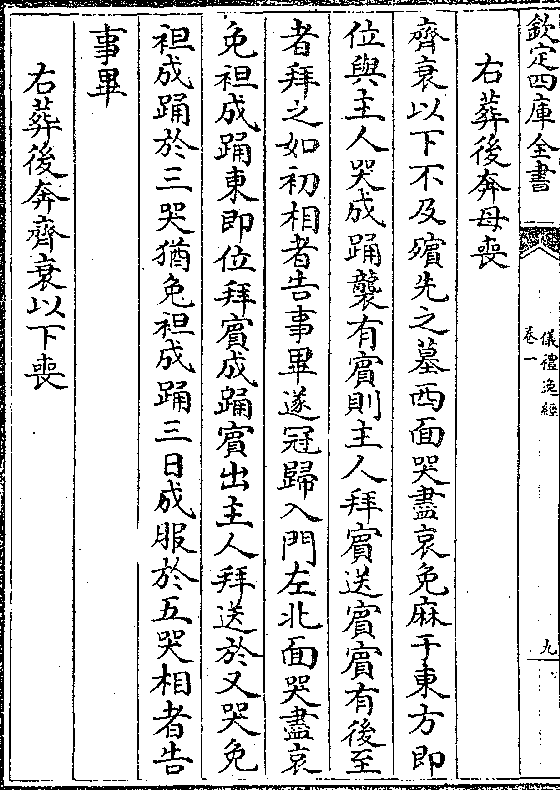 欽定四庫全書
儀禮逸經
卷一
九
右葬後奔母喪
齊衰以下不及殯先之墓西面哭盡哀免麻于東方即
位與主人哭成踊襲有賓則主人拜賓送賓賓有後至
者拜之如初相者告事畢遂冠歸入門左北面哭盡哀
免袒成踊東即位拜賓成踊賓出主人拜送於又哭免
袒成踊於三哭猶免袒成踊三日成服於五哭相者告
事畢
右葬後奔齊衰以下喪